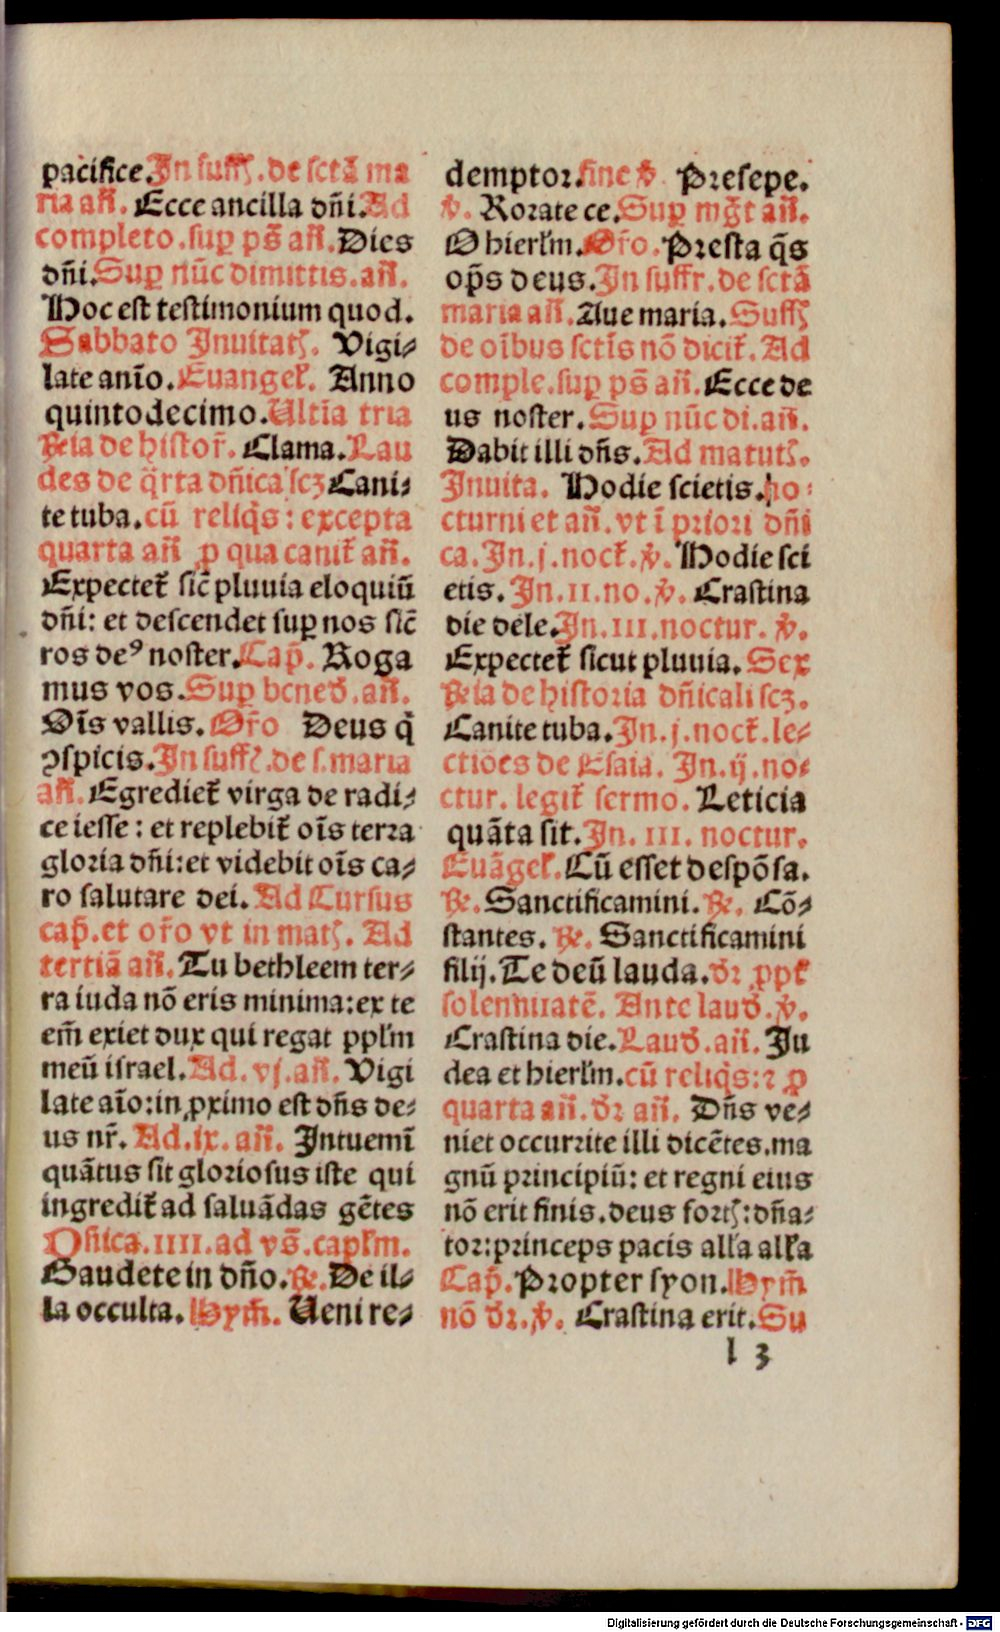 pacifice. In suffꝭ. de sctā ma
ria añ. Ecce ancilla dñi. Ad
completo. suꝑ ps̄ añ. Dies
dñi. Suꝑ nūc dimittis. añ.
Hoc est testimonium quod.
Sabbato Inuitatꝭ. Vigi⸗
late anīo. Euangel̄. Anno
quintodecimo. Ultīa tria
℞ia de histor̄. Clama. Lau
des de q̈rta dñica scꝫ Cani⸗
te tuba. cū reliq̄s: excepta
quarta añ ꝓ qua canit̄ añ.
Expectet̄ sic̄ pluuia eloquiū
dñi: et descendet suꝑ nos sic̄
ros deꝰ noster. Cap̄. Roga
mus vos. Suꝑ bened̄. añ.
Oīs vallis. Or̄o Deus q̄
ꝯspicis. In suffꝭ. de s. maria
añ. Egrediet̄ virga de radi⸗
ce iesse: et replebit̄ oīs terra
gloria dñi: et videbit oīs ca⸗
ro salutare dei. Ad Cursus
cap̄. et or̄o vt in matꝭ. Ad
tertiā añ. Tu bethleem ter⸗
ra iuda nō eris minima: ex te
em̄ exiet dux qui regat ppl̄m
meū israel. Ad. vj. añ. Vigi
late aīo: in ꝓximo est dñs de⸗
us nr̄. Ad. ix. añ. Intuemī
quātus sit gloriosus iste qui
ingredit̄ ad saluādas gētes
Dñica. IIII. ad vs̄. capl̄m.
Gaudete in dño. ℞. De il⸗
la occulta. Hym̄. Ueni re⸗
demptor. sine ꝟ. Presepe.
ꝟ. Rorate ce. Suꝑ mḡt añ.
O hierl̄m. Or̄o. Presta q̄s
op̄s deus. In suffr. de sctā
maria añ. Aue maria. Suffꝭ
de oībus sctīs nō dicit̄. Ad
comple. suꝑ ps̄ añ. Ecce de
us noster. Suꝑ nūc di. añ.
Dabit illi dñs. Ad matutꝭ.
Inuita. Hodie scietis. no⸗
cturni et añ. vt ī priori dñi
ca. In. j. noct̄. ꝟ. Hodie sci
etis. In. II. no. ꝟ. Crastina
die dele. In. III. noctur. ꝟ.
Expectet̄ sicut pluuia. Sex
℞ia de historia dñicali scꝫ.
Canite tuba. In. j. noct̄. le⸗
ctiōes de Esaia. In. ij. no⸗
ctur. legit̄ sermo. Leticia
quāta sit. In. III. noctur.
Euāgel̄. Cū esset despōsa.
℞. Sanctificamini. ℞. Cō⸗
stantes. ℞. Sanctificamini
filij. Te deū lauda. dr̄ ꝓpt̄
solennitatē. Ante laud̄. ꝟ.
Crastina die. Laud̄. añ. Iu
dea et hierl̄m. cū reliq̄s: ⁊ ꝓ
quarta añ. dr̄ añ. Dñs ve⸗
niet occurrite illi dicētes. ma
gnū principiū: et regni eius
nō erit finis. deus fortꝭ: dña⸗
tor: princeps pacis all̄a all̄a
Cap̄. Propter syon. Hym̄
nō dr̄. ꝟ. Crastina erit. Su
l 3
Digitalisierung gefördert durch die Deutsche Forschungsgemeinschaft - DFG